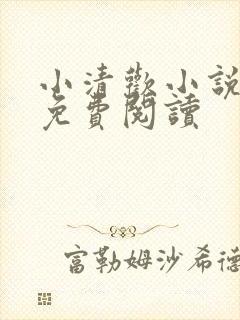 小清歡小說
免費閱讀
富勒姆沙希德